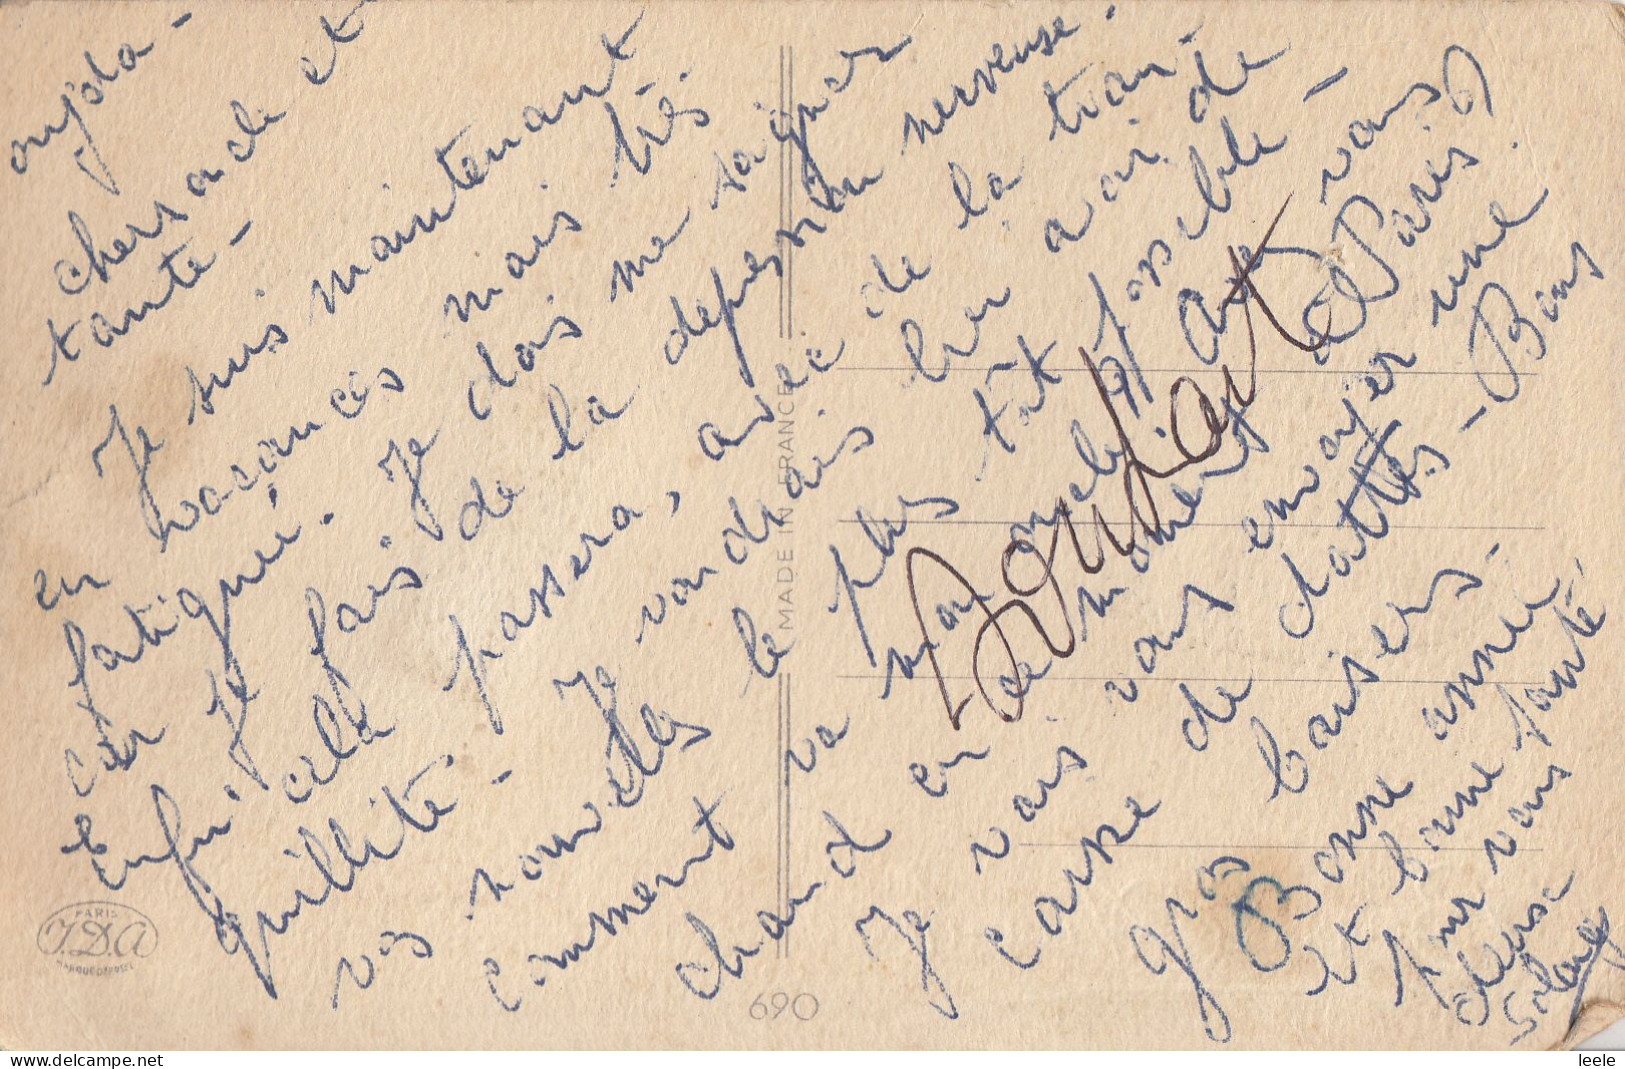 aujda -
chers oncle et
tante -
Je suis maintenant
en vacances mais très
fatiguée. Je dois me soigner
car je fais de la dépression nerveuse.
Enfin cela passera, avec de la tran-
quillité. Je voudrais bien avoir de
vos nouvelles le plus tôt possible -
comment va mon oncle
chaud en ce moment à Paris ?
Je vais vous envoyer une
caisse de dattes - Bons
gros baisers.
Bonne année
et bonne santé
pour vous
chers
Solange
PARIS
J.D.A
MARQUE DÉPOSÉE
MADE IN FRANCE
690
leele